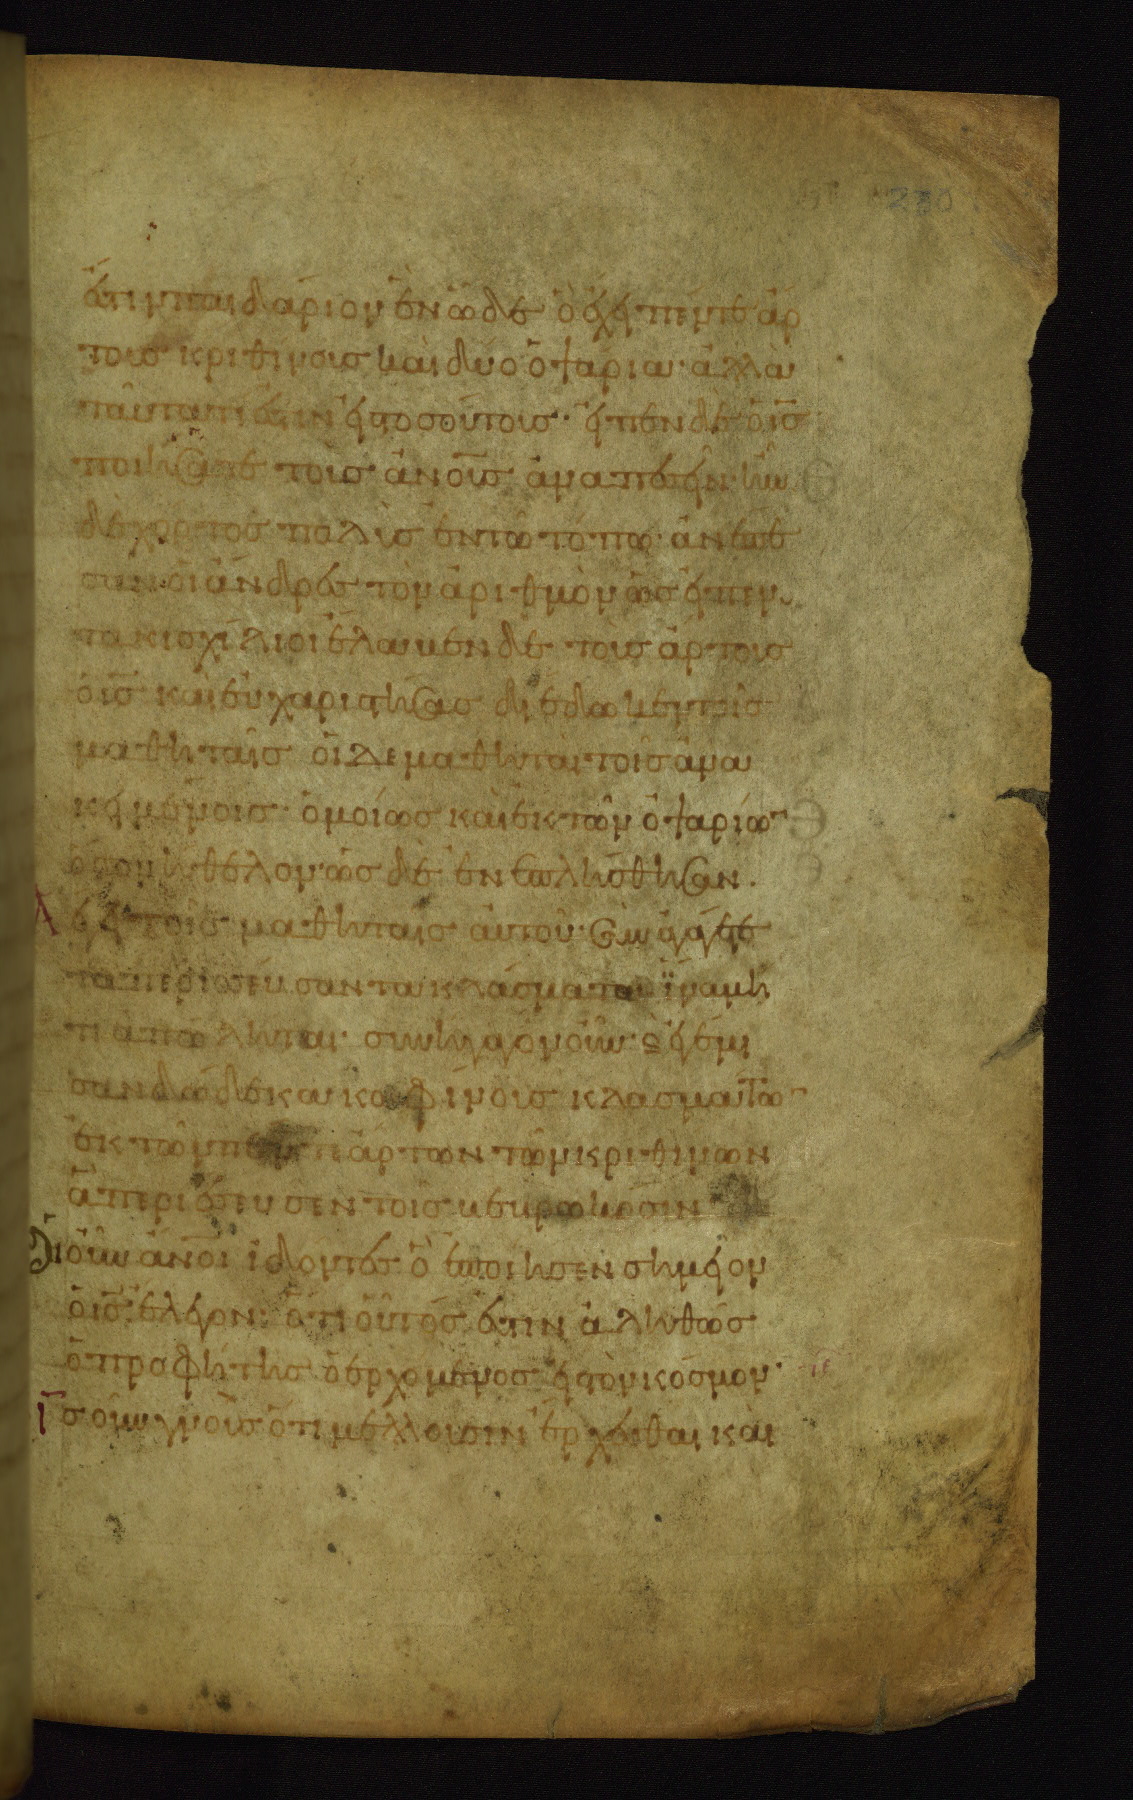 230
ἔστιν παιδάριον ἓν ὧδε ὃ ἔχει πέντε ἄρ
τους κριθίνους καὶ δύο ὀψάρια· ἀλλὰ
ταῦτα τί ἐστιν εἰς τοσούτους· εἶπεν δὲ ὁ ις
ποιήσατε τοὺς ανους ἀναπεσεῖν· ἦν
δὲ χόρτος πολὺς ἐν τῶ τόπω· ἀνέπε
σαν οἱ ἄνδρες τὸν ἀριθμὸν ὡσεὶ πεν
τακισχίλιοι ἔλαβεν δὲ τοὺς ἄρτους
ὁ ις καὶ εὐχαριστήσας διέδωκεν τοῖς
μαθηταῖς οἱ δὲ μαθηταὶ τοῖς ἀνα
κειμένοις· ὁμοίως καὶ ἐκ τῶν ὀψαρίω
ὅσον ἤθελον· ὡς δὲ ἐνεπλήσθησαν.
λέγει τοῖς μαθηταῖς αὐτοῦ· συναγάγετε
τὰ περισσεύσαντα κλάσματα ἵνα μή
τι ἀπόληται· συνήγαγον οὖν· καὶ ἐγέμι
σαν δώδεκα κοφίνους κλασμάτω
ἐκ τῶν πέντε ἄρτων τῶν κριθίνων
ἃ ἐπερίσσευσεν τοῖς βεβρωκόσιν
Οἱ οὖν ανοι ἰδόντες ὃ ἐποίησεν σημεῖον
ὁ ις ἔλεγον· ὅτι οὗτός ἐστιν ἀληθῶς
ὁ προφήτης ὁ ἐρχόμενος εἰς τὸν κόσμον·
ις οὖν γνοὺς ὅτι μέλλουσιν ἔρχεσθαι καὶ